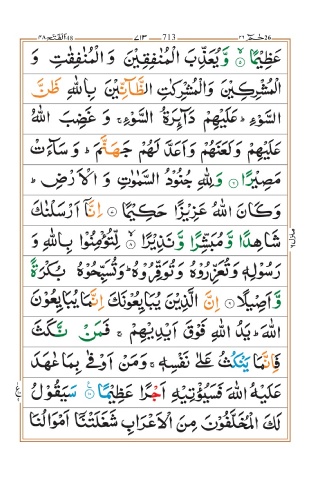 الفتح ٤٨ ٧١٣ 713 حٰمٓ ٢٦
عَظِيْمًا ۙ‏ وَّيُعَذِّبَ الْمُنٰفِقِيْنَ وَ الْمُنٰفِقٰتِ وَ
الْمُشْرِكِيْنَ وَ الْمُشْرِكٰتِ الظَّآنِّيْنَ بِاللّٰهِ ظَنَّ
السَّوْءِ ؕ عَلَيْهِمْ دَآئِرَةُ السَّوْءِ ۚ وَ غَضِبَ اللّٰهُ
عَلَيْهِمْ وَ لَعَنَهُمْ وَ اَعَدَّ لَهُمْ جَهَنَّمَ ؕ وَ سَآءَتْ
مَصِيْرًا ۶ وَ لِلّٰهِ جُنُوْدُ السَّمٰوٰتِ وَ الْاَرْضِ ؕ
وَ كَانَ اللّٰهُ عَزِيْزًا حَكِيْمًا ۷ اِنَّاۤ اَرْسَلْنٰكَ
شَاهِدًا وَّ مُبَشِّرًا وَّ نَذِيْرًا ۸ لِّتُؤْمِنُوْا بِاللّٰهِ وَ
رَسُوْلِهٖ وَ تُعَزِّرُوْهُ وَ تُوَقِّرُوْهُ ؕ وَ تُسَبِّحُوْهُ بُكْرَةً
وَّ اَصِيْلًا ۹ اِنَّ الَّذِيْنَ يُبَايِعُوْنَكَ اِنَّمَا يُبَايِعُوْنَ
اللّٰهَ ؕ يَدُ اللّٰهِ فَوْقَ اَيْدِيْهِمْ ۚ فَمَنْ نَّكَثَ
فَاِنَّمَا يَنْكُثُ عَلٰى نَفْسِهٖ ۚ وَ مَنْ اَوْفٰى بِمَا عٰهَدَ
عَلَيْهُ اللّٰهَ فَسَيُؤْتِيْهِ اَجْرًا عَظِيْمًا ۱۰ سَيَقُوْلُ
لَكَ الْمُخَلَّفُوْنَ مِنَ الْاَعْرَابِ شَغَلَتْنَاۤ اَمْوَالُنَا